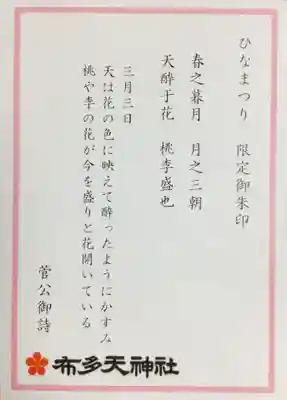 ひなまつり 限定御朱印
春之暮月 月之三朝
天酔于花 桃李盛也
三月三日
天は花の色に映えて酔ったようにかすみ
桃や李の花が今を盛りと花開いている
菅公御詩
布多天神社